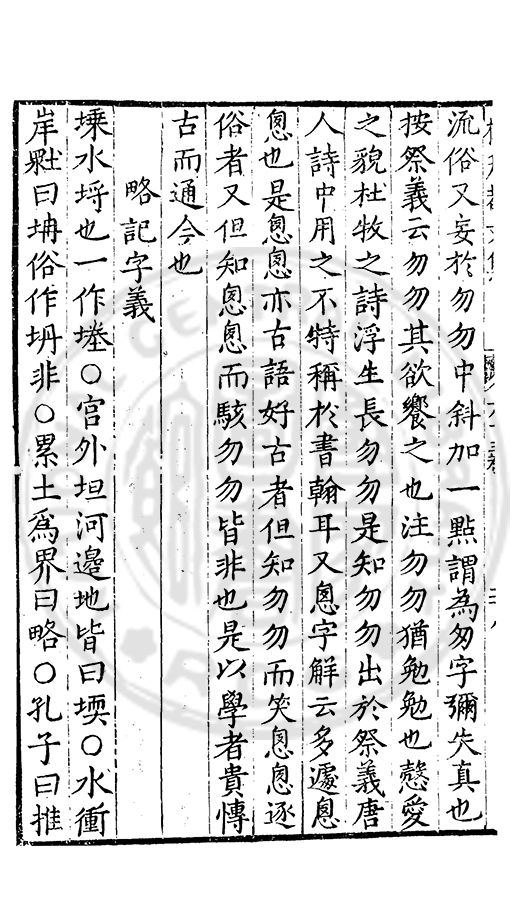 流俗又妄於勿勿中斜加一點謂為匆字彌失真也
按祭義云勿勿其欲饗之也注勿勿猶勉勉也慤愛
之貌杜牧之詩浮生長勿勿是知勿勿出於祭義唐
人詩中用之不特稱於書翰耳又悤字解云多遽悤
悤也是悤悤亦古語好古者但知勿勿而笑悤悤逐
俗者又但知悤悤而駭勿勿皆非也是以學者貴慱
古而通今也
略記字義
塖水埒也一作塍○宫外坦河邊地皆曰堧○水衝
岸㱮曰坍俗作坍非○累土爲界曰略○孔子曰推